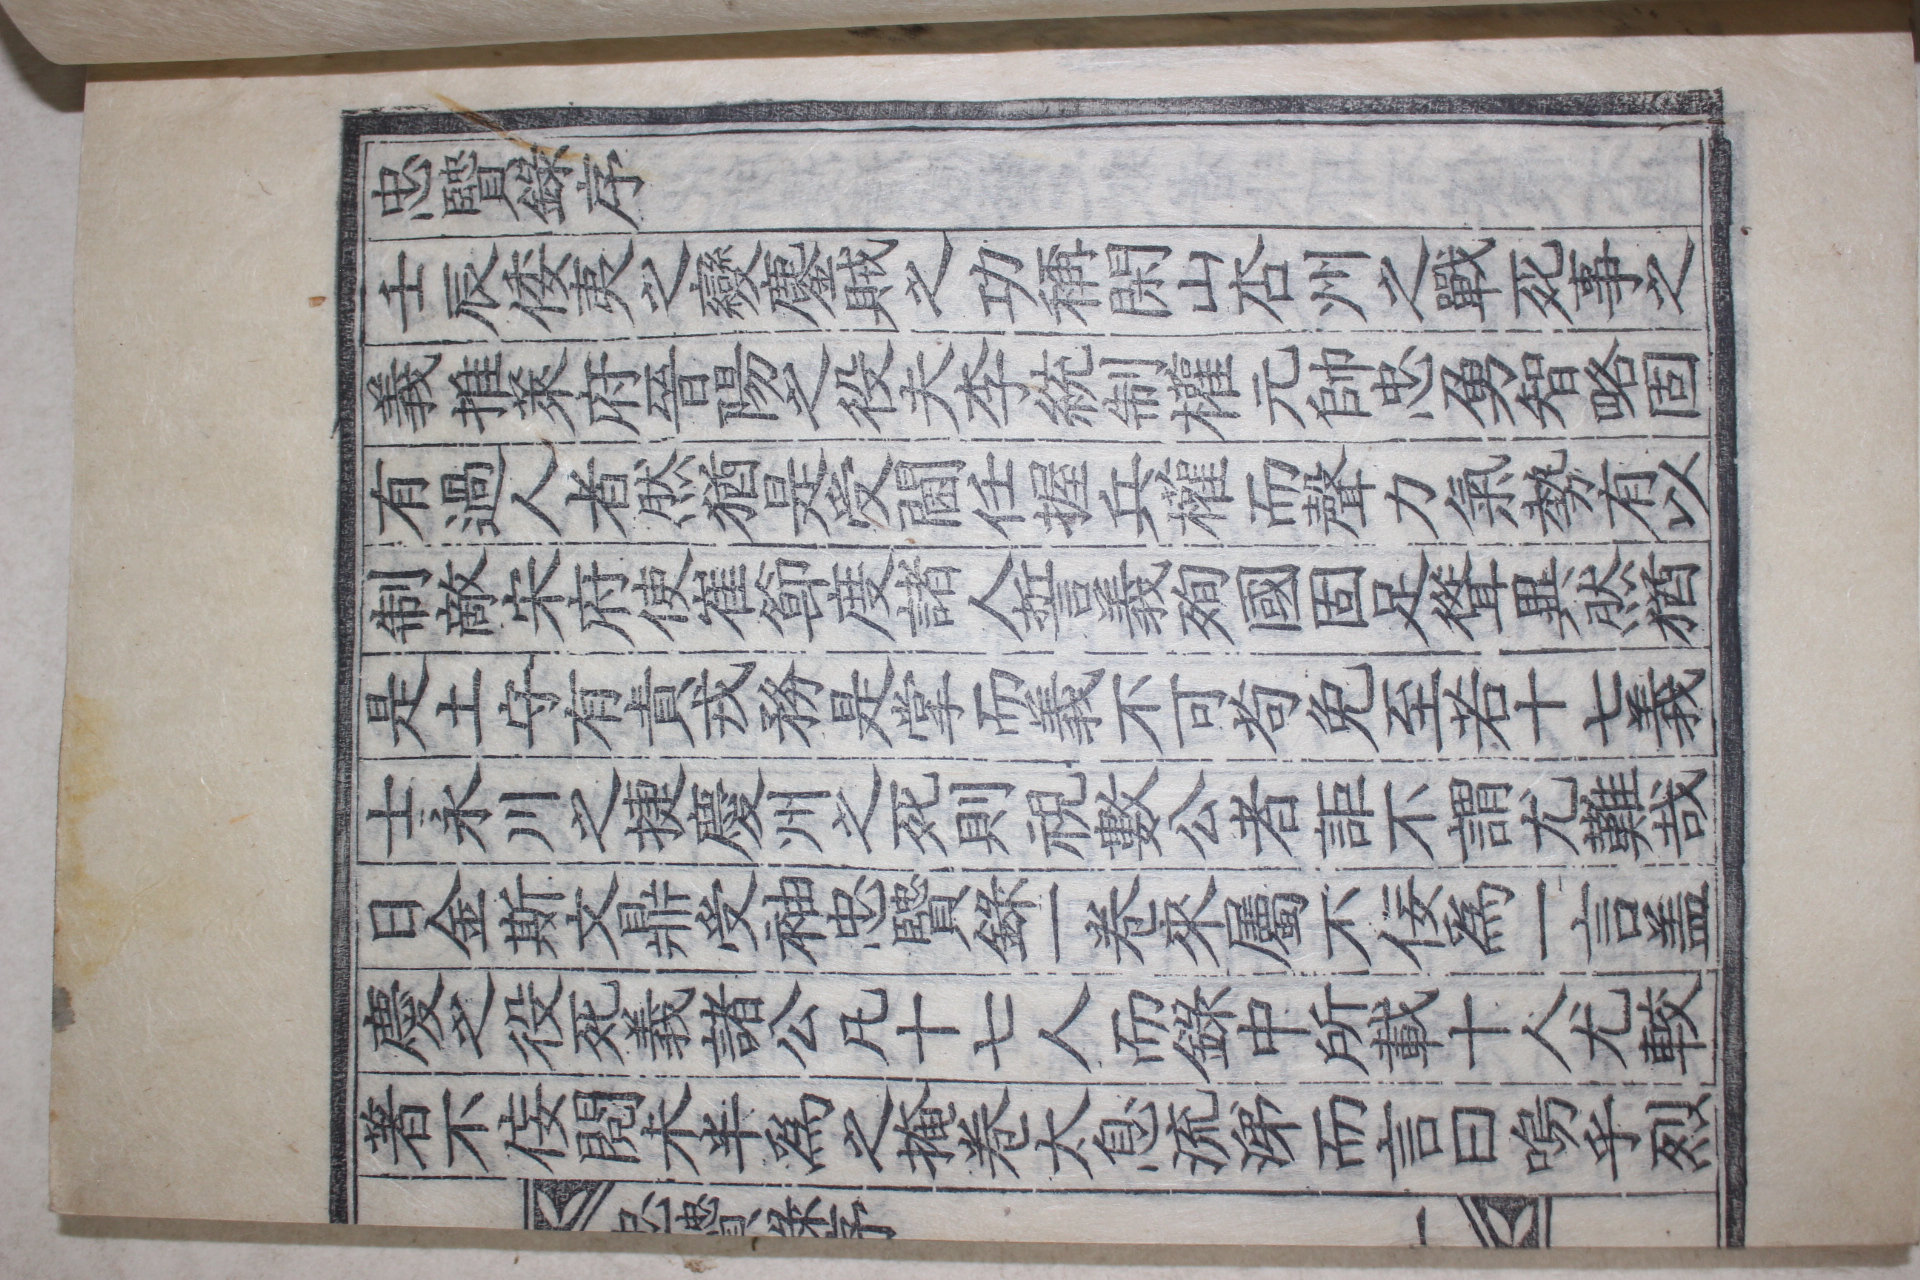 忠賢錄序
壬辰倭夷之變鏖賊之功稱閑山杏州之戰死事之
義推萊府晉陽之役夫李統制權元帥忠勇智略固
有過人者然猶是受閫任握兵權而聲力氣勢有以
制敵宋府使崔節度諸人誓義殉國固足聳異然猶
是土守有責戎務是掌而義不可苟免至若十七義
士永川之捷慶州之死則視數公者詎不謂尤難哉
日金斯文鼎受袖忠賢錄一卷來屬不侫爲一言盖
慶之役死義諸公凡十七人而錄中所載十人尤較
著不侫閱未半爲之掩卷太息流涕而言曰嗚乎烈
忠賢錄序
一